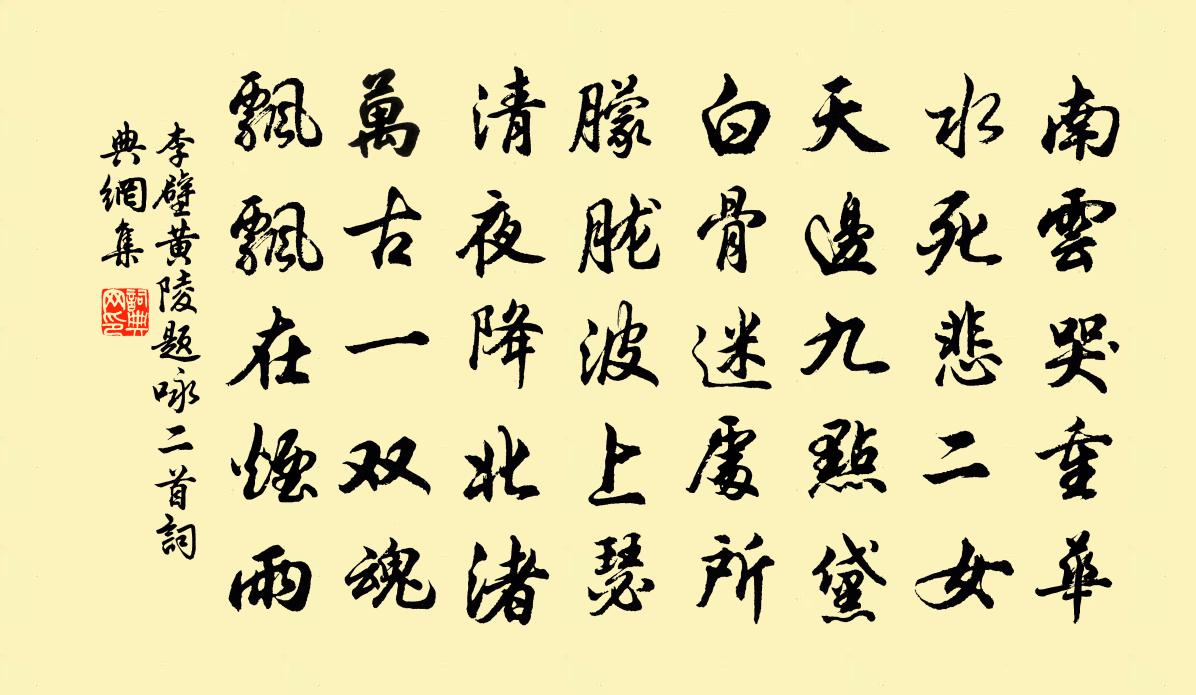 南雲哭重華
水死悲二女
天邊九點黛
白骨迷處所
朦朧波上瑟
清夜降北渚
萬古一双魂
飄飄在煙雨
李壁黄陵题咏二首詞
典網集
詞典
网印